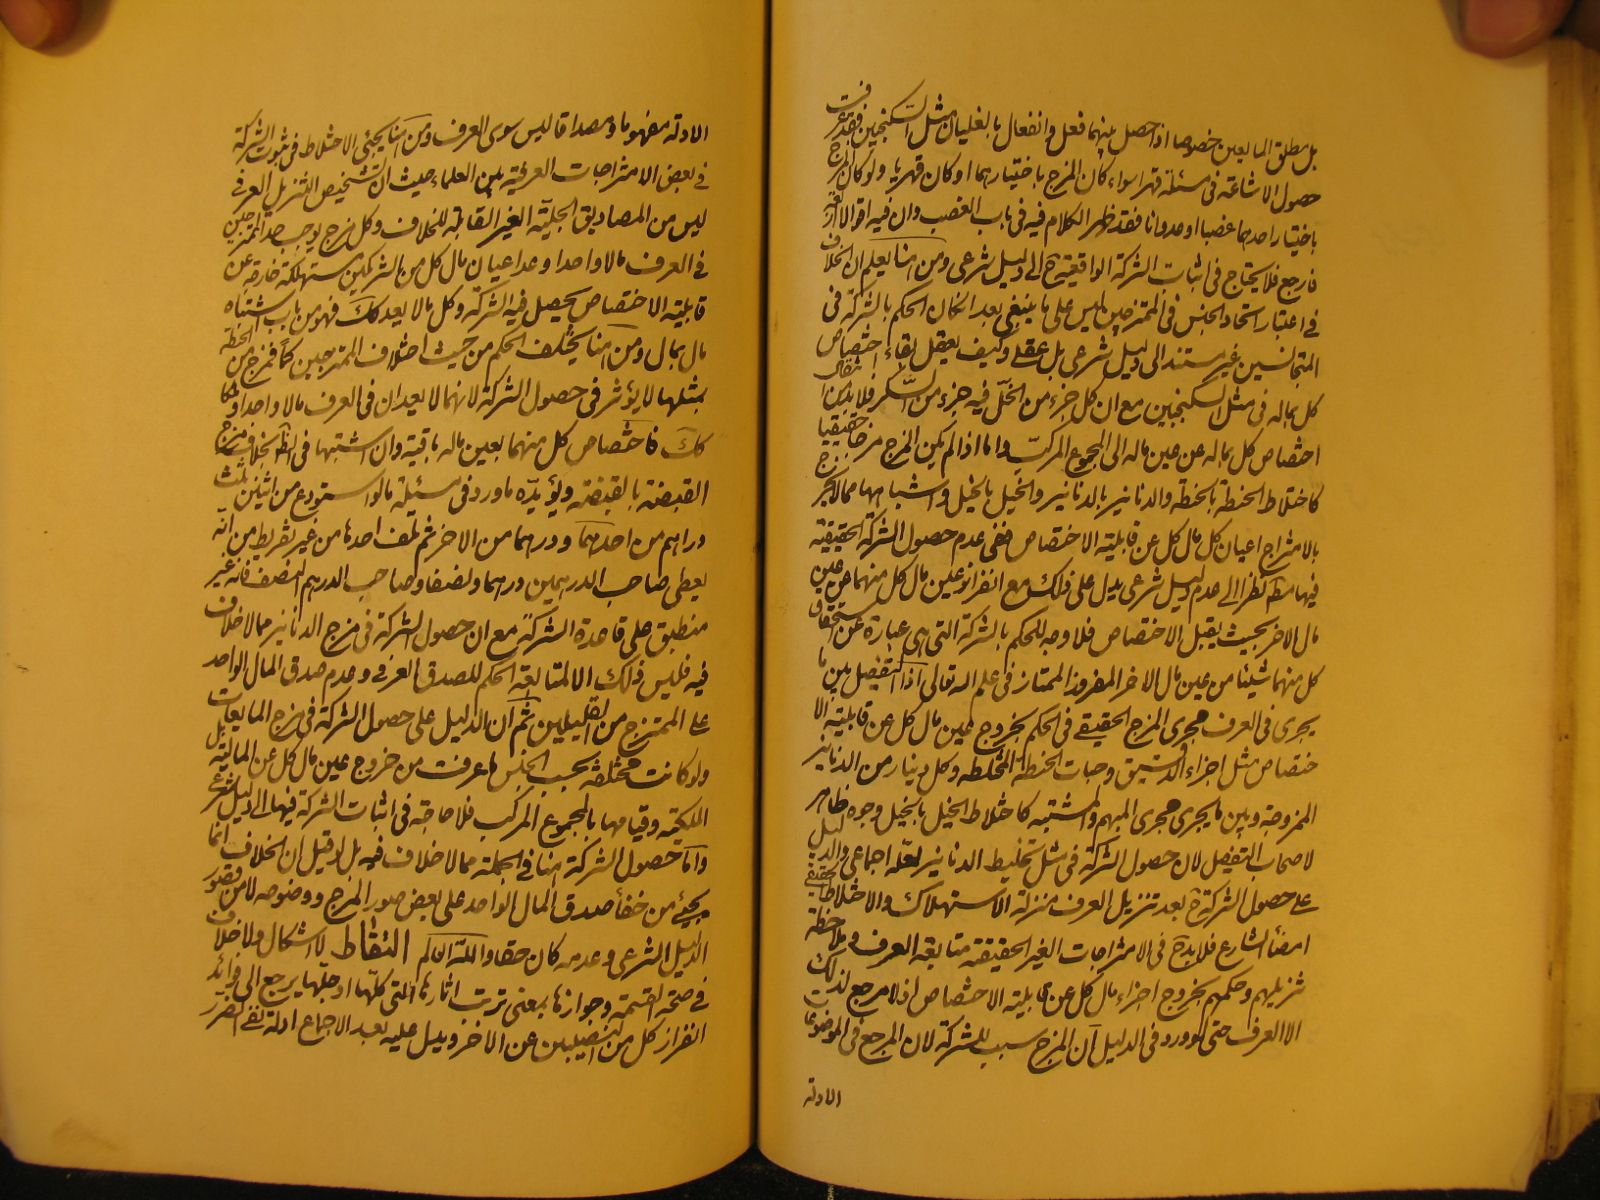 بل مطلق المايعين خصوصا اذا حصل بينهما فعل وانفعال بالغليان مثل السكنجبين فقد عرفت
حصول الاشاعة في مسئلة قهرا سواء كان المزج باختيارهما او كان قهريا ولو كان المزج
باختيار احدهما غصبا او عدوانا فقد ظهر الكلام فيه في باب الغصب وان فيه اقوالا
فارجع فلا يحتاج في اثبات الشركة الواقعية ح الى دليل شرعي ومن هنا يعلم ان الخلاف
في اعتبار اتحاد الجنس في الممتزجين ليس على ما ينبغي بعد امكان الحكم بالشركة في
المتجانسين غير مستند الى دليل شرعي بل عقلي وكيف يعقل بقاء اختصاص
كل بماله في مثل السكنجبين مع ان كل جزء من الخل فيه جزء من السكر فلا بد من انتقال
اختصاص كل بماله عن عين ماله الى المجموع المركب واما اذا لم يكن المزج مزجا حقيقيا
كاختلاط الحنطة بالحنطة والدنانير بالدنانير والخيل بالخيل واشباهها مما لا يخرج
بالامتزاج اعيان كل مال كل عن قابلية الاختصاص ففي عدم حصول الشركة الحقيقية
فيها مط نظرا الى عدم دليل شرعي يدل على ذلك مع انفراز عين مال كل منهما عن عين
مال الاخر بحيث يقبل الاختصاص فلا وجه للحكم بالشركة التي هي عبارة عن استحقاق
كل منهما شيئا من عين مال الاخر المفروز الممتاز في علم الله تعالى او التفصيل بين ما
يجري في العرف مجرى المزج الحقيقي في الحكم بخروج عين مال كل عن قابلية الا
ختصاص مثل اجزاء الدقيق وحبات الحنطة المختلطة وكل دينار من الدنانير
الممزوجة وبين ما يجري مجرى المبهم والمشتبه كاختلاط الخيل بالخيل وجوه ظاهر
لاصحاب التفصيل لان حصول الشركة في مثل تخليط الدنانير لعله اجماعي والدليل
على حصول الشركة ح بعد تنزيل العرف منزلة الاستهلاك والاختلاط الحقيقي
امضاء الشارع فلا بد ح في الامتزاجات الغير الحقيقية متابعة العرف وملاحظة
تنزيلهم وحكمهم بخروج اجزاء مال كل عن قابلية الاختصاص اذ لا مرجع لذلك
الا العرف حتى لو ورد في الدليل ان المزج سبب للشركة لان المرجع في الموضوعات
الادلة
الادلة مفهوما ومصداقا ليس سوى العرف ومن هنا يجئ الاختلاط في ثبوت الشركة
في بعض الامتزاجات العرفية بين العلماء حيث ان تشخيص التنزيل العرفي
ليس من المصاديق الجلية الغير القابلة للخلاف وكل مزج يوجب عد الممتزجين
في العرف مالا واحدا وعد اعيان مال كل من الشركين مستهلكة خارجة عن
قابلية الاختصاص يحصل فيه الشركة وكل ما لا يعد كك فهو من باب اشتباه
مال بمال ومن هنا يختلف الحكم من حيث اختلاف الممتزجين كما فمزج من الحنطة
بمثلها لا يؤثر في حصول الشركة لانهما لا يعدان في العرف مالا واحدا
كك فاختصاص كل منهما بعين ماله باقية وان اشتبها في الظ بخلاف مزج
القبضة بالقبضة ويؤيده ما ورد في مسئلة ما لو استودع من اثنين ثلث
دراهم من احدهما ودرهما من الاخر ثم تلف احدها من غير تفريط من انه
يعطى صاحب الدرهمين درهما ونصفا وصاحب الدرهم النصف فانه غير
منطبق على قاعدة الشركة مع ان حصول الشركة في مزج الدنانير مما لا خلاف
فيه فليس ذلك الا لمتابعة الحكم للصدق العرفي وعدم صدق المال الواحد
على الممتزج من القليلين ثم ان الدليل على حصول الشركة في مزج المايعات
ولو كانت مختلفة بحسب الجنس ما عرفت من خروج عين مال كل عن المالية
الملكية وقيامها بالمجموع المركب فلا حاجة في اثبات الشركة فيها الى دليل شرعي
واما حصول الشركة هنا في الجملة مما لا خلاف فيه بل لو قيل ان الخلاف انما
يجئ من خفاء صدق المال الواحد على بعض صور المزج ووضوحه لا من قصور
الدليل الشرعي وعدمه كان حقا والله العالم التقاط لا اشكال ولا خلاف
في صحة القسمة وجوازها بمعنى ترتب اثارها التي كلها او جلها يرجع الى فوائد
انفراز كل من النصيبين عن الاخر ويدل عليه بعد الاجماع ادلة نفي الضرر